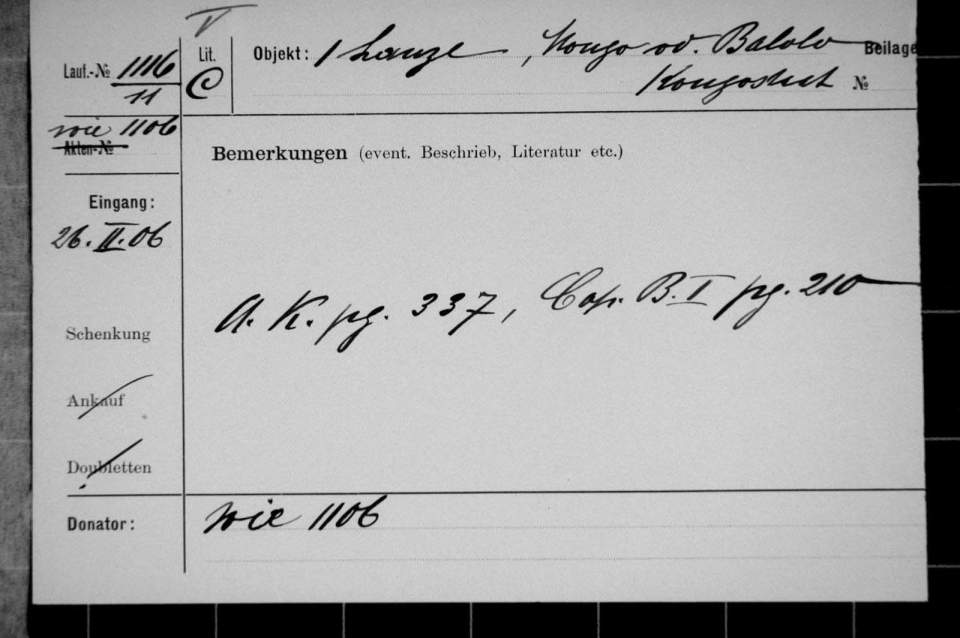 V
Lauf.-№ 1116
11
Lit.
C
Objekt: 1 Lanze, Mongo od. Balolo Beilage
Kongostaat №
wie 1106
Akten-№
Bemerkungen (event. Beschrieb, Literatur etc.)
Eingang:
26. II. 06
A. K. pg. 337, Cop. B. I pg. 210
Schenkung
Ankauf
Doubletten
Donator: wie 1106